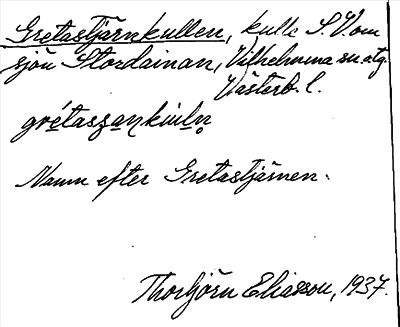 Gretastjärnkullen, kulle S.V. om
sjön Stordainan, Vilhelmina sn.
Västerb. l.
Namn efter Gretastjärnen.
Thorbjörn Eliasson, 1937.